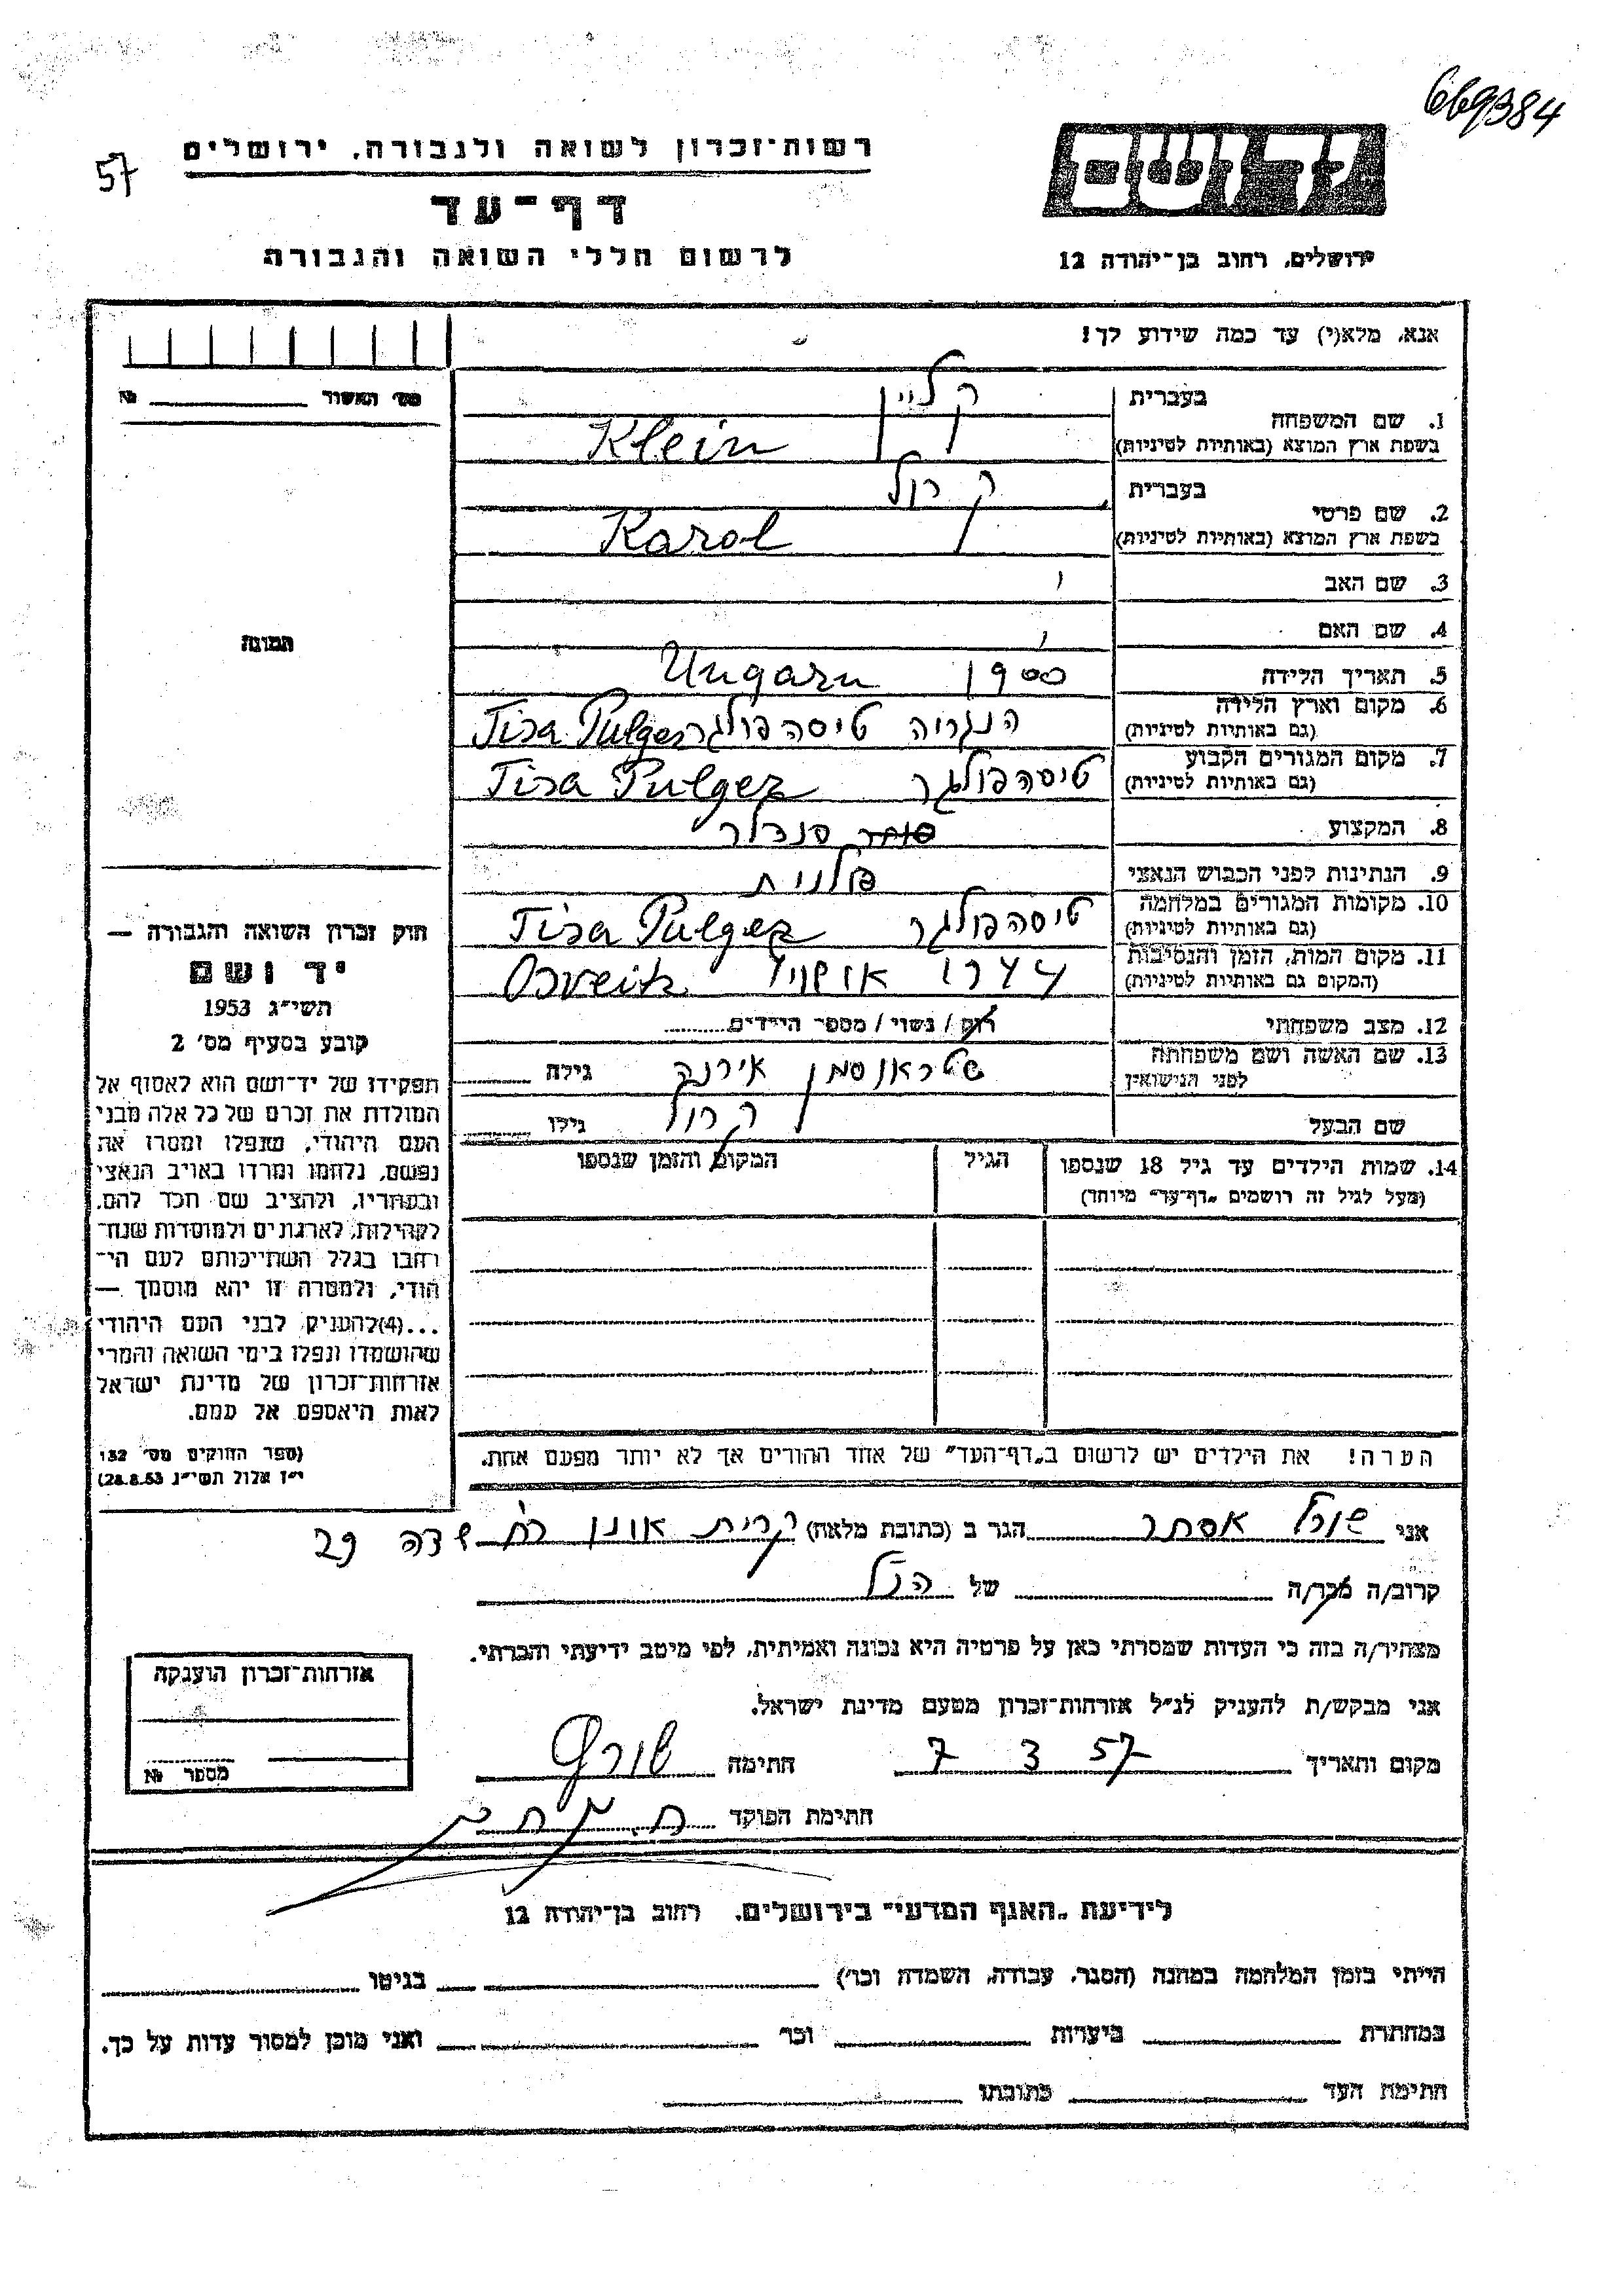 669384
57
יד ושם
רשות-זכרון לשואה ולגבורה, ירושלים
דף-עד
לרשום חללי השואה והגבורה
ירושלים, רחוב בן-יהודה 12
אנא, מלא(י) עד כמה שידוע לך!
מס' האשור №
1. שם המשפחה בעברית קליין
בשפת ארץ המוצא (באותיות לטיניות) Klein
2. שם פרטי בעברית קרול
בשפת ארץ המוצא (באותיות לטיניות) Karol
3. שם האב
4. שם האם
5. תאריך הלידה 1900 Ungarn
6. מקום וארץ הלידה (גם באותיות לטיניות) הנגריה טיסהפולגר Tisa Pulger
7. מקום המגורים הקבוע (גם באותיות לטיניות) טיסהפולגר Tisa Pulger
8. המקצוע סוחר סנדלר
9. הנתינות לפני הכבוש הנאצי
10. מקומות המגורים במלחמה (גם באותיות לטיניות) טיסהפולגר Tisa Pulger
11. מקום המות, הזמן והנסיבות (המקום גם באותיות לטיניות) 1944 Osveitz
12. מצב משפחתי רוק / נשוי / מספר הילדים
13. שם האשה ושם משפחתה לפני הנישואין שטראוסמן אירנה גילה
שם הבעל קרול גילו
14. שמות הילדים עד גיל 18 שנספו הגיל המקום והזמן שנספו
(מעל לגיל זה רושמים „דף-עד" מיוחד)
הערה! את הילדים יש לרשום ב„דף-העד" של אחד ההורים אך לא יותר מפעם אחת.
תמונה
חוק זכרון השואה והגבורה —
יד ושם
תשי"ג 1953
קובע בסעיף מס' 2
תפקידו של יד-ושם הוא לאסוף אל
המולדת את זכרם של כל אלה מבני
העם היהודי, שנפלו ומסרו את
נפשם, נלחמו ומרדו באויב הנאצי
ובעוזריו, ולהציב שם וזכר להם,
לקהילות, לארגונים ולמוסדות שנח-
רבו בגלל השתייכותם לעם הי-
הודי, ולמטרה זו יהא מוסמך —
...(4)להעניק לבני העם היהודי
שהושמדו ונפלו בימי השואה והמרי
אזרחות-זכרון של מדינת ישראל
לאות היאספם אל עמם.
(ספר החוקים מס' 132
י"ז אלול תשי"ג 28.8.53)
אני אסתר הגר ב (כתובת מלאה) קרית אונו רח' שדה 29
קרוב/ה מכר/ה של הנ"ל
מצהיר/ה בזה כי העדות שמסרתי כאן על פרטיה היא נכונה ואמיתית, לפי מיטב ידיעתי והכרתי.
אני מבקש/ת להעניק לנ"ל אזרחות-זכרון מטעם מדינת ישראל.
מקום ותאריך 7 3 57 חתימה
חתימת הפוקד
אזרחות-זכרון הוענקה
מספר №
לידיעת „האגף המדעי" בירושלים, רחוב בן-יהודה 12
הייתי בזמן המלחמה במחנה (הסגר, עבודה, השמדה וכו') בגיטו
במחתרת ביערות וכו' ואני מוכן למסור עדות על כך.
חתימת העד כתובתו